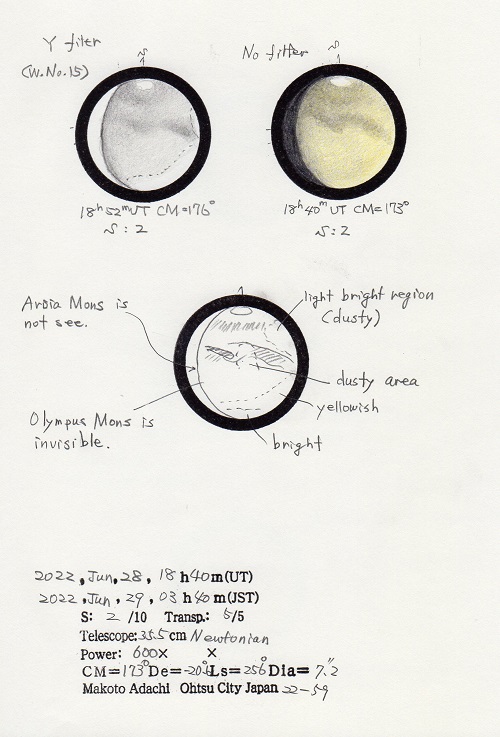 Y filter
(W.No.15)
S
18h 52m UT CM=176°
S : 2
No filter
S
18h 40m UT CM=173°
S : 2
Arsia Mons is
not see.
Olympus Mons is
invisible.
light bright region
(dusty)
dusty area
yellowish
bright
2022, Jun, 28, 18 h 40 m (UT)
2022, Jun, 29, 03 h 40 m (JST)
S: 2 /10 Transp.: 5/5
Telescope: 35.5 cm Newtonian
Power: 600× ×
CM=173° De=-20.6 Ls=256° Dia= 7."2
Makoto Adachi Ohtsu City Japan 22-59